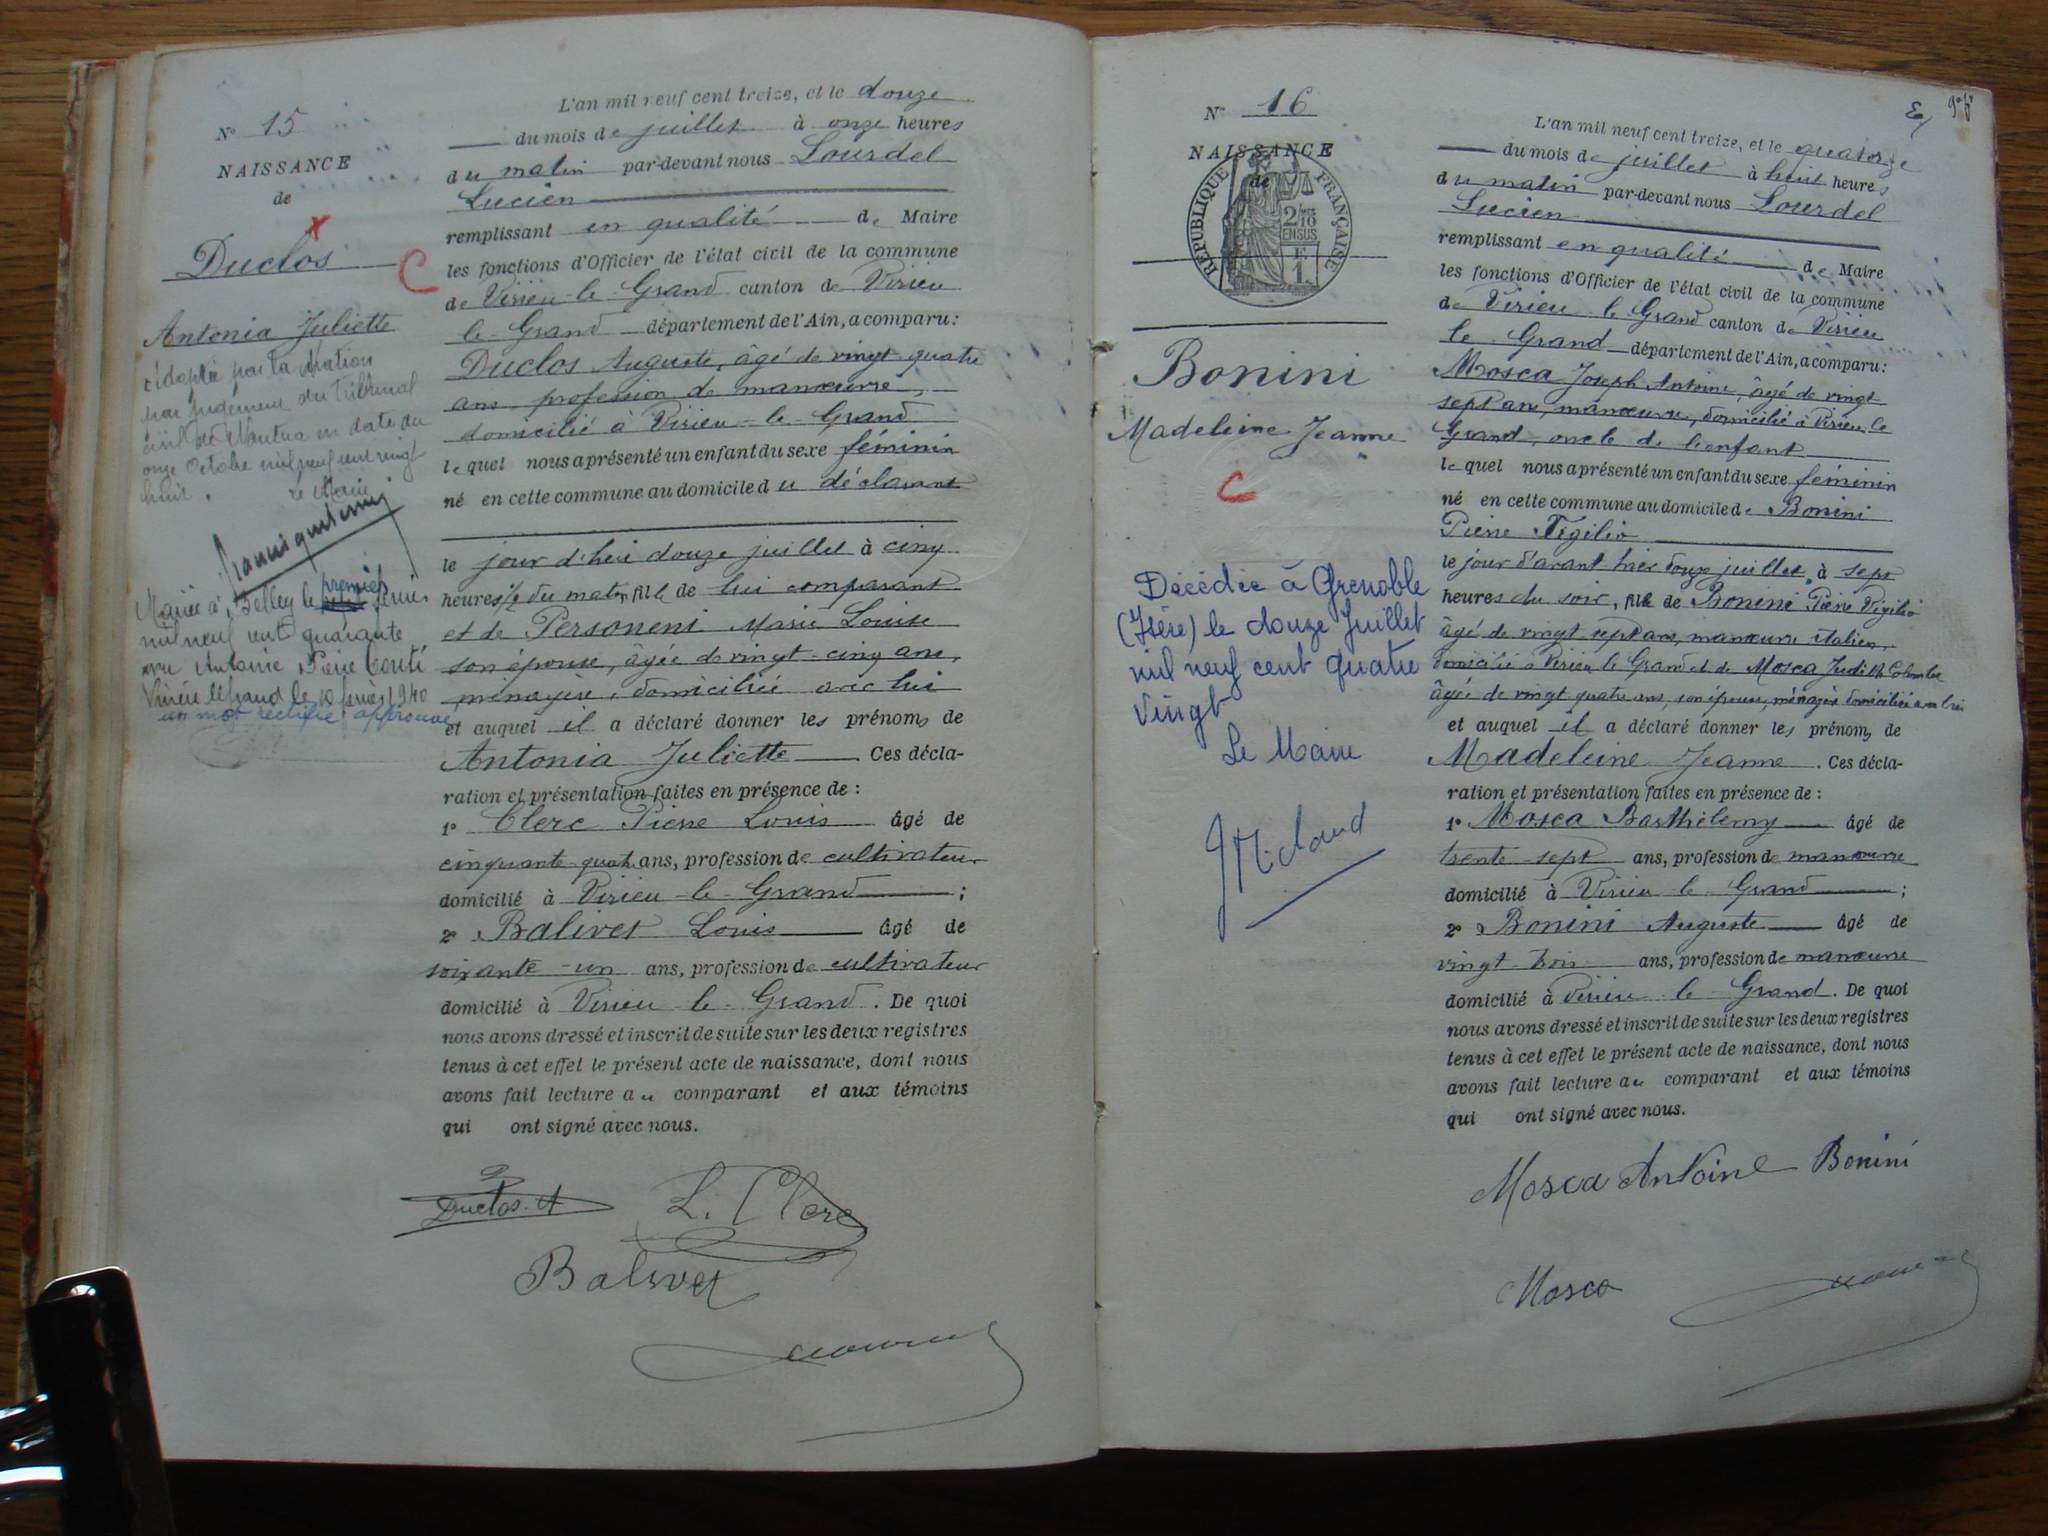 N° 15
NAISSANCE
de
Duclos
Antonia Juliette
Adoptée par la Nation
par jugement du Tribunal
civil de Nantua en date du
onze Octobre mil neuf cent vingt
huit. Le Maire
Mariée à Belley le premier février
mil neuf cent quarante
avec Antoine Pierre Conti
Virieu le Grand le 10 février 1940
un mot rectifié approuvé
C
L'an mil neuf cent treize, et le douze
du mois de juillet à onze heures
du matin par-devant nous Lourdel
Lucien
remplissant en qualité de Maire
les fonctions d'Officier de l'état civil de la commune
de Virieu-le-Grand canton de Virieu
le-Grand département de l'Ain, a comparu:
Duclos Auguste, âgé de vingt-quatre
ans, profession de manœuvre,
domicilié à Virieu-le-Grand
lequel nous a présenté un enfant du sexe féminin
né en cette commune au domicile du déclarant
le jour d'hui douze juillet à cinq
heures ½ du matin, fille de lui comparant
et de Personeni Marie Louise
son épouse, âgée de vingt-cinq ans,
ménagère, domiciliée avec lui
et auquel il a déclaré donner les prénoms de
Antonia Juliette. Ces décla-
ration et présentation faites en présence de :
1° Clerc Pierre Louis âgé de
cinquante-quatre ans, profession de cultivateur
domicilié à Virieu-le-Grand ;
2° Balivet Louis âgé de
soixante-un ans, profession de cultivateur
domicilié à Virieu-le-Grand. De quoi
nous avons dressé et inscrit de suite sur les deux registres
tenus à cet effet le présent acte de naissance, dont nous
avons fait lecture au comparant et aux témoins
qui ont signé avec nous.
Duclos. A L. Clerc
Balivet
N° 16
NAISSANCE
de
RÉPUBLIQUE FRANÇAISE
2/10 EN SUS
F.
1.
Bonini
Madeleine Jeanne
C
Décédée à Grenoble
(Isère) le douze Juillet
mil neuf cent quatre
vingt
Le Maire
L'an mil neuf cent treize, et le quatorze
du mois de juillet à huit heures
du matin par-devant nous Lourdel
Lucien
remplissant en qualité de Maire
les fonctions d'Officier de l'état civil de la commune
de Virieu-le-Grand canton de Virieu
le Grand département de l'Ain, a comparu:
Mosca Joseph Antoine, âgé de vingt
sept ans, manœuvre, domicilié à Virieu-le
Grand, oncle de l'enfant
lequel nous a présenté un enfant du sexe féminin
né en cette commune au domicile de Bonini
Pierre Vigilio
le jour d'avant hier douze juillet, à sept
heures du soir, fille de Bonini Pierre Vigilio
âgé de vingt sept ans, manœuvre italien,
domicilié à Virieu le Grand et de Mosca Judith
âgée de vingt quatre ans, son épouse, ménagère domiciliée avec lui
et auquel il a déclaré donner les prénoms de
Madeleine Jeanne. Ces décla-
ration et présentation faites en présence de :
1° Mosca Barthélemy âgé de
trente-sept ans, profession de manœuvre
domicilié à Virieu-le-Grand ;
2° Bonini Auguste âgé de
vingt-trois ans, profession de manœuvre
domicilié à Virieu-le-Grand. De quoi
nous avons dressé et inscrit de suite sur les deux registres
tenus à cet effet le présent acte de naissance, dont nous
avons fait lecture au comparant et aux témoins
qui ont signé avec nous.
Mosca Antoine Bonini
Mosca